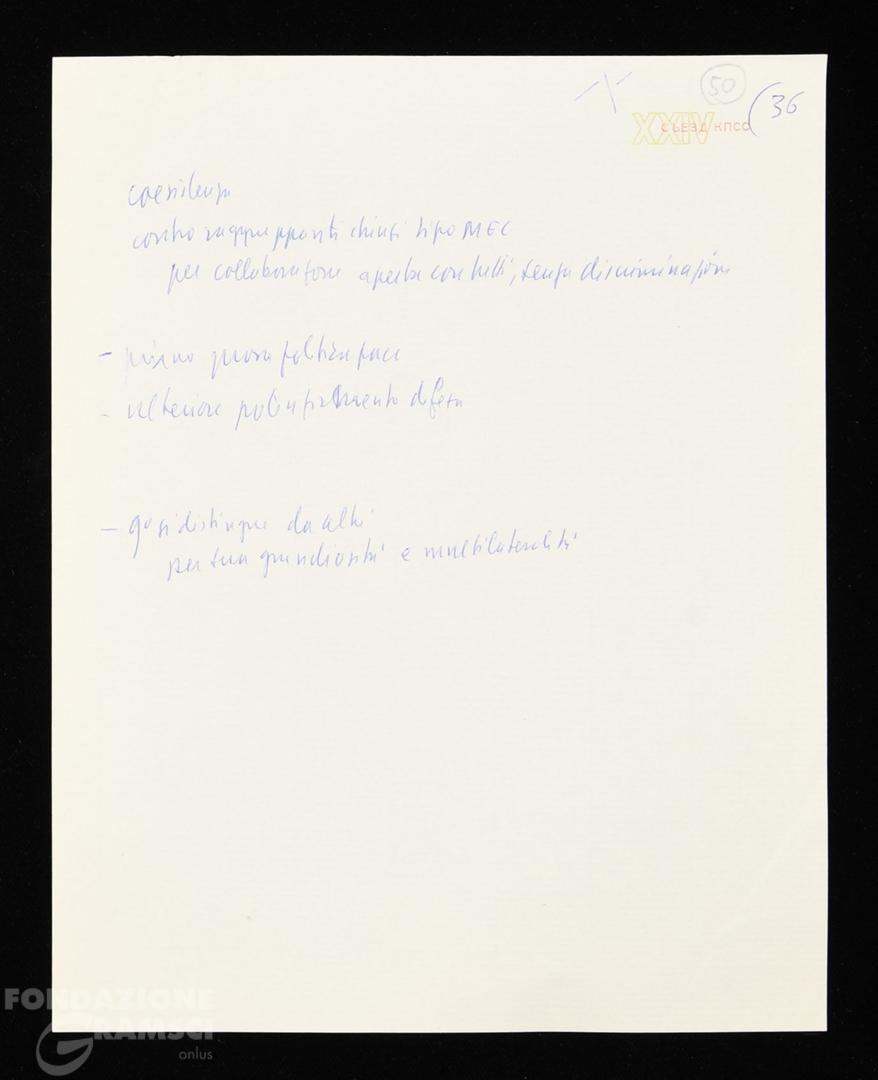 50
(36
XXIV СЪЕЗД КПСС
coesistenza
contro raggruppamenti chiusi tipo MEC
per collaborazione aperta con tutti, senza discriminazioni
- pace
- ulteriore difesa
- qº si distingue da altri
per sua grandiosità e multilateralità
FONDAZIONE
GRAMSCI
onlus